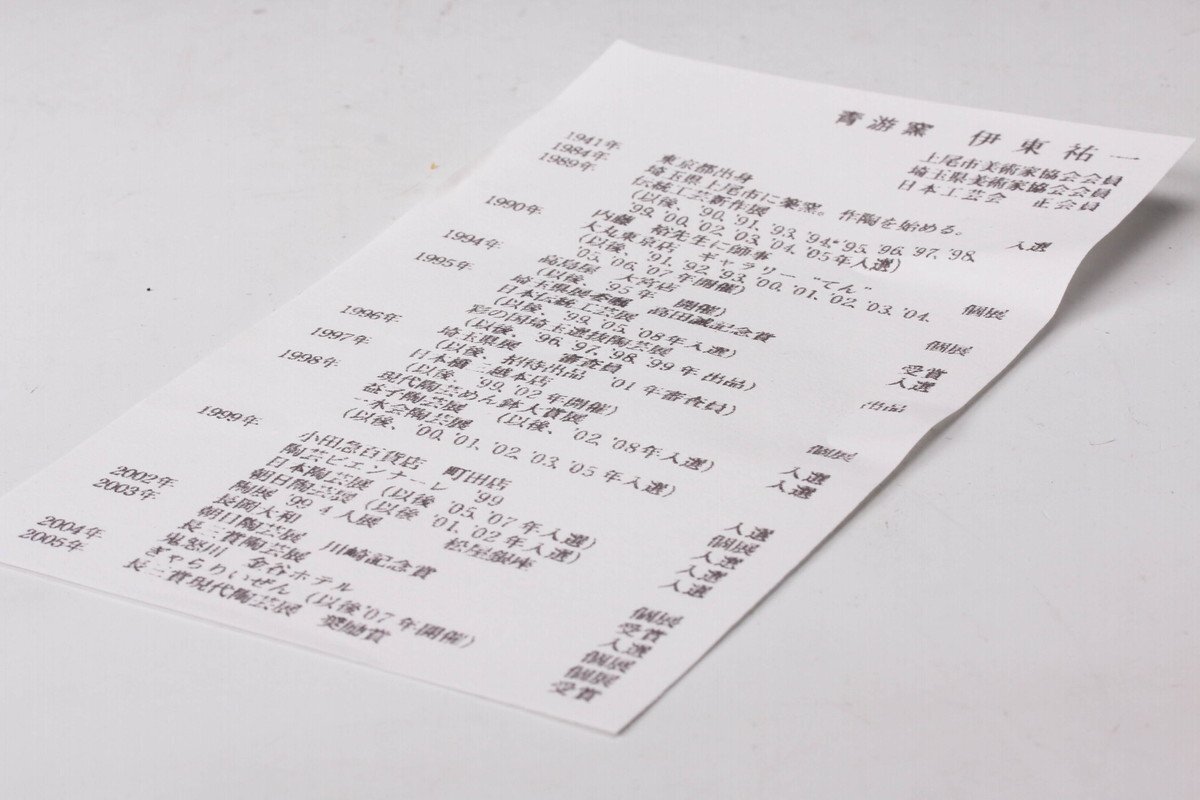 青游窯 伊東祐一
上尾市美術家協会会員
埼玉県美術家協会会員
日本工芸会 正会員
1941年 東京都出身
1984年 埼玉県上尾市に築窯。作陶を始める。
1989年 伝統工芸新作展 入選
(以後、'90, '91, '93, '94, '95, '96, '97, '98,
'99, '00, '02, '03, '04, '05年入選)
1990年 内藤 裕先生に師事
大丸東京店 ギャラリー "てん" 個展
(以後、'91, '92, '93, '00, '01, '02, '03, '04,
'05, '06, '07年開催)
1994年 高島屋 大宮店 個展
(以後、'95年 開催)
1995年 埼玉県展 高田誠記念賞 受賞
日本伝統工芸展 入選
(以後、'99, '05, '08年入選)
彩の国埼玉選抜陶芸展 出品
(以後、'96, '97, '98, '99年 出品)
1996年 埼玉県展 審査員
(以後、招待出品 '01年審査員)
1997年 日本橋三越本店 個展
(以後、'99, '02年開催)
1998年 現代陶芸めん鉢大賞展 入選
益子陶芸展 (以後、'02, '08年入選) 入選
一水会陶芸展 入選
(以後、'00, '01, '02, '03, '05年入選)
1999年 小田急百貨店 町田店 個展
陶芸ビエンナーレ '99 入選
日本陶芸展 (以後 '05, '07年入選) 入選
朝日陶芸展 (以後 '01, '02年入選) 入選
陶展 '99 4人展 松屋銀座
2002年 長岡大和 個展
2003年 朝日陶芸展 川崎記念賞 受賞
長三賞陶芸展 入選
2004年 鬼怒川 金谷ホテル 個展
2005年 ぎゃらりいぜん (以後'07年開催) 個展
長三賞現代陶芸展 奨励賞 受賞